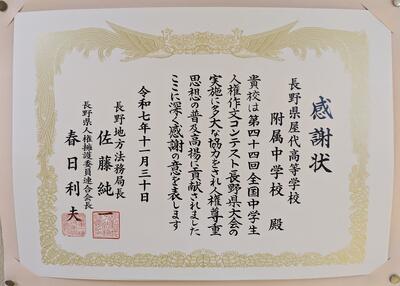 感謝状
長野県屋代高等学校
附属中学校 殿
貴校は第四十四回全国中学生
人権作文コンテスト長野県大会の
実施に多大な協力をされ人権尊重
思想の普及高揚に貢献されました
ここに深く感謝の意を表します
令和七年十一月三十日
長野地方法務局長
佐藤純一
長野県人権擁護委員連合会長
春日利夫